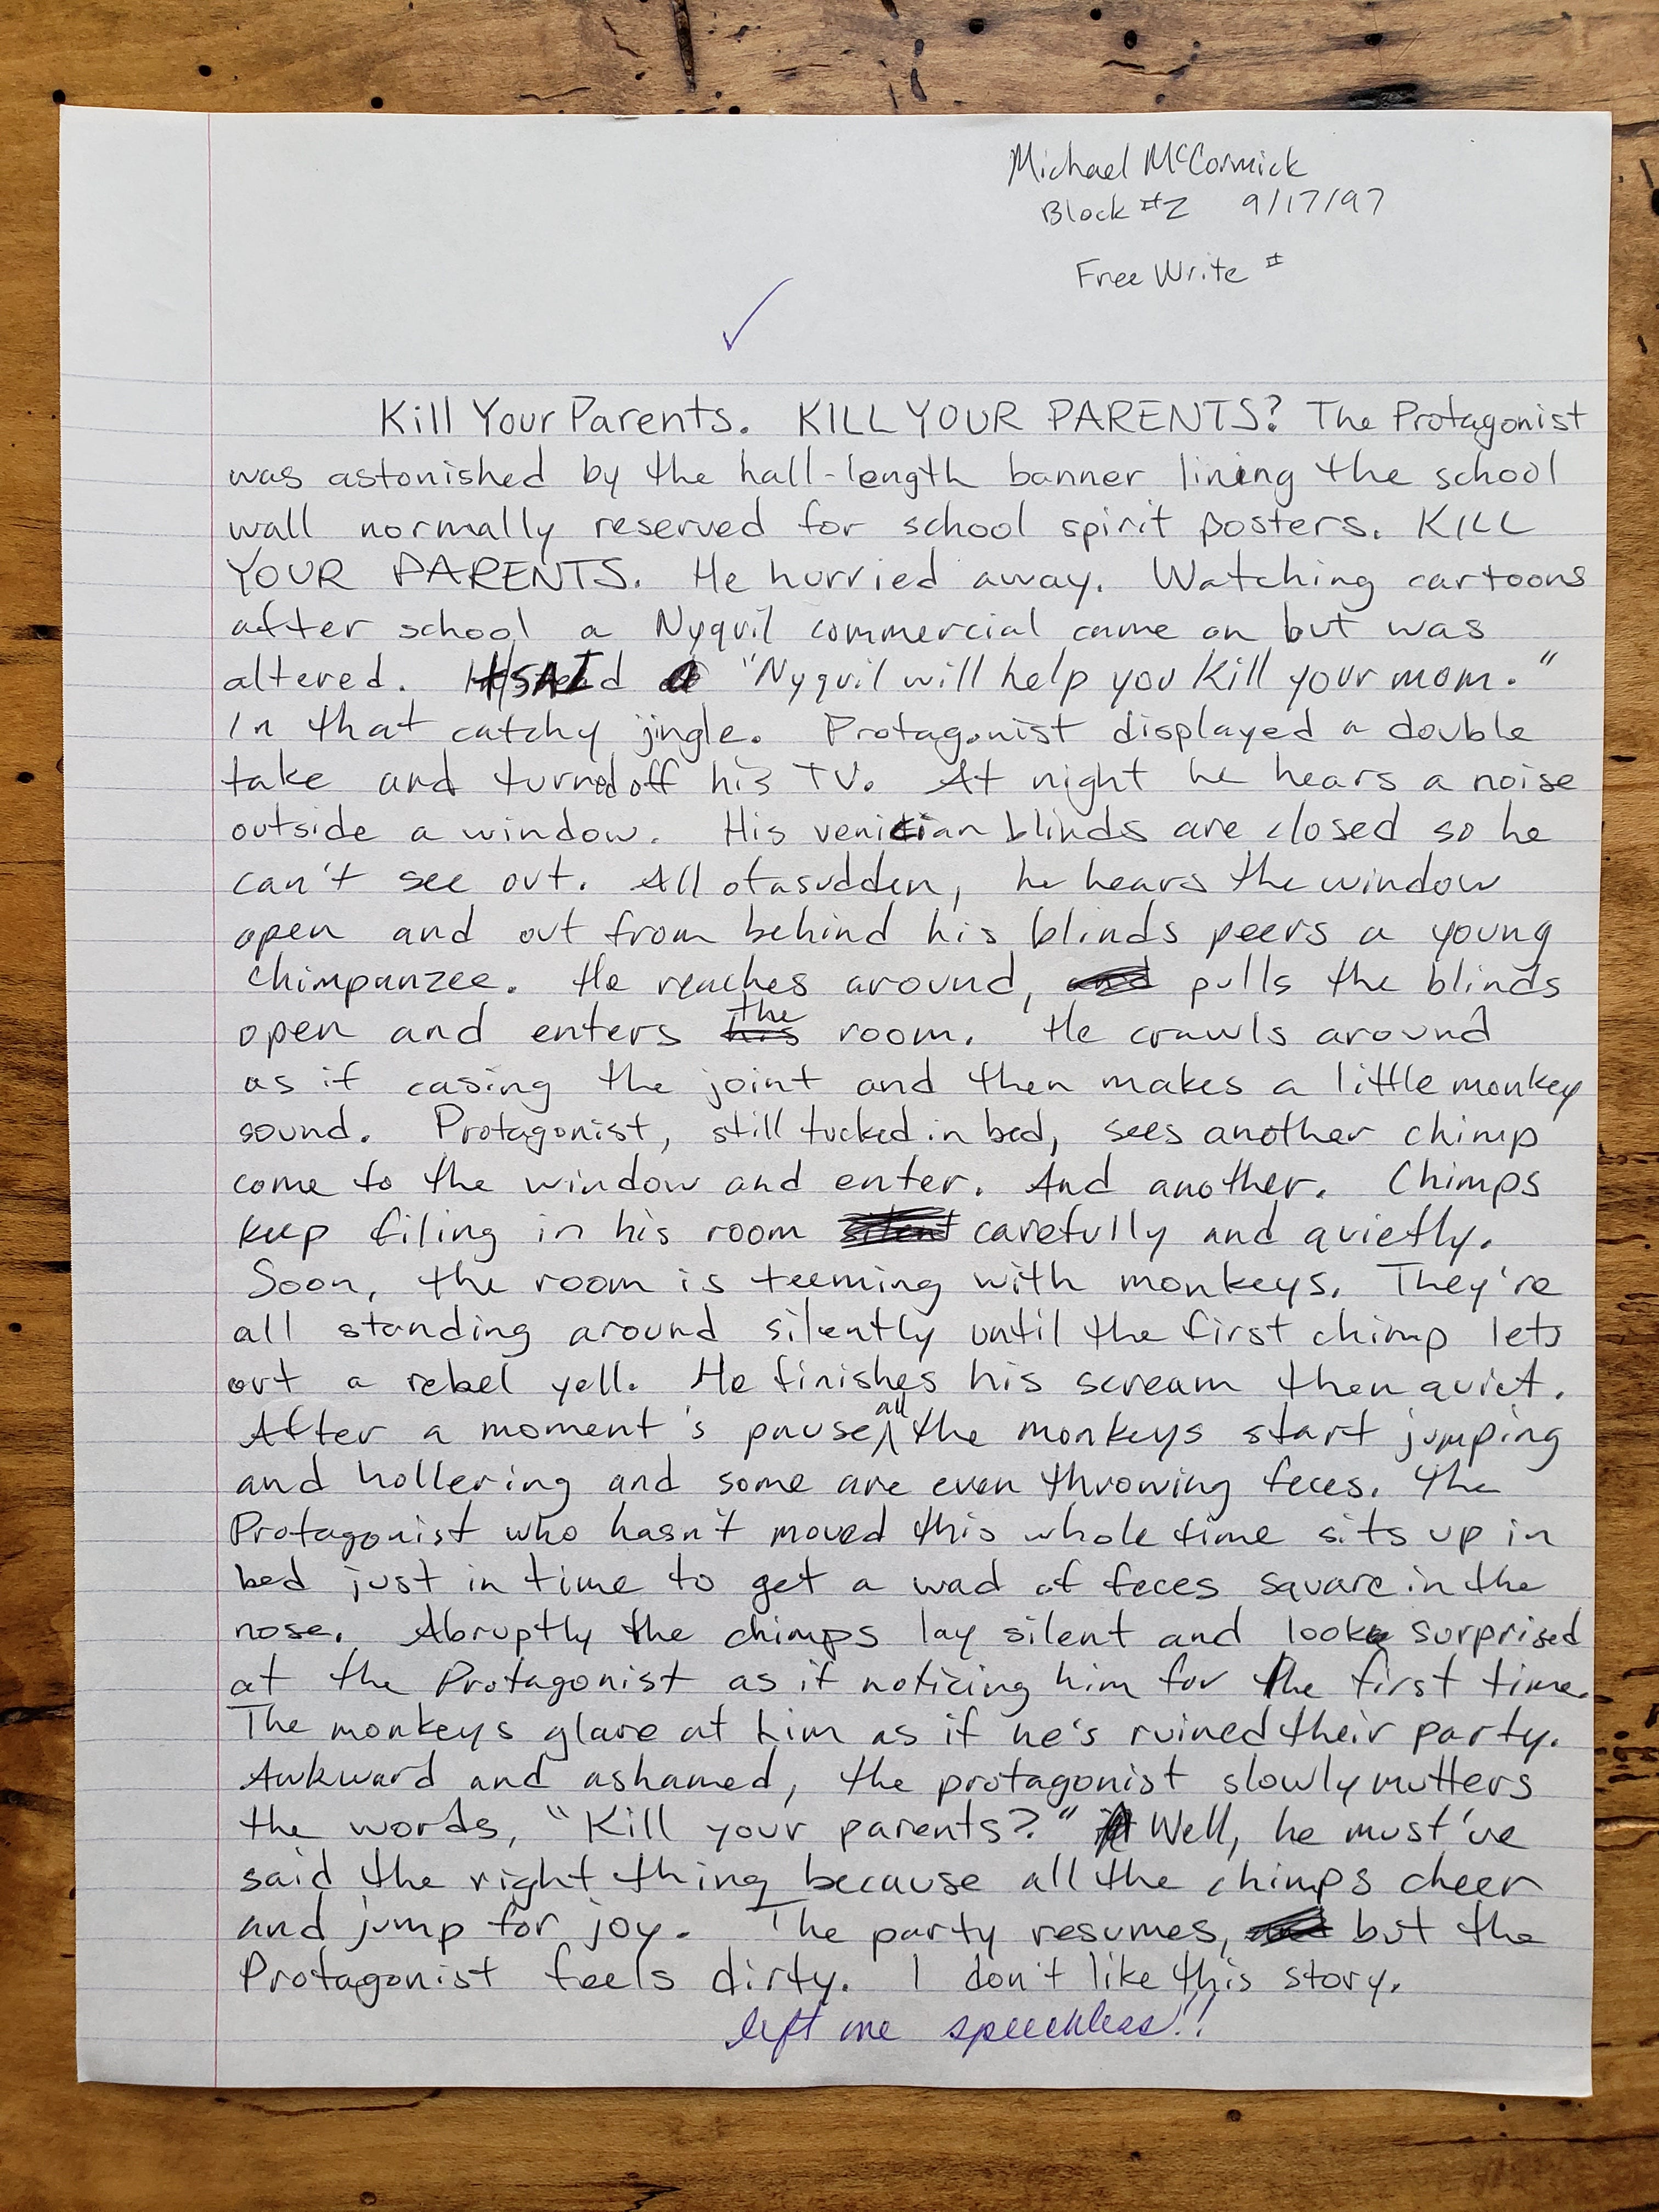 Michael McCormick
Block #2 9/17/97
Free Write #
Kill Your Parents. KILL YOUR PARENTS? The Protagonist
was astonished by the hall-length banner lining the school
wall normally reserved for school spirit posters. KILL
YOUR PARENTS. He hurried away. Watching cartoons
after school a Nyquil commercial came on but was
altered. "Nyquil will help you Kill your mom."
In that catchy jingle. Protagonist displayed a double
take and turned off his TV. At night he hears a noise
outside a window. His venician blinds are closed so he
can't see out. All of a sudden, he hears the window
open and out from behind his blinds peers a young
chimpanzee. He reaches around, and pulls the blinds
open and enters his the room. He crawls around
as if casing the joint and then makes a little monkey
sound. Protagonist, still tucked in bed, sees another chimp
come to the window and enter. And another. Chimps
keep filing in his room silent carefully and quietly.
Soon, the room is teeming with monkeys. They're
all standing around silently until the first chimp lets
out a rebel yell. He finishes his scream then quiet.
After a moment's pause, all the monkeys start jumping
and hollering and some are even throwing feces. The
Protagonist who hasn't moved this whole time sits up in
bed just in time to get a wad of feces square in the
nose. Abruptly the chimps lay silent and look surprised
at the Protagonist as if noticing him for the first time.
The monkeys glare at him as if he's ruined their party.
Awkward and ashamed, the protagonist slowly mutters
the words, "Kill your parents?" Well, he must've
said the right thing because all the chimps cheer
and jump for joy. The party resumes, but the
Protagonist feels dirty. I don't like this story.
left me speechless!!